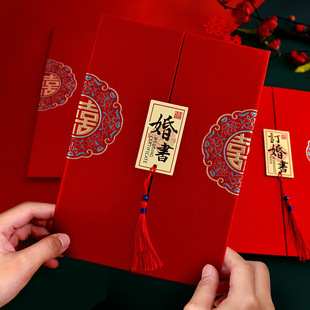 婚書
WEDDING
CERTIFICATE
訂婚書
囍
囍
囍